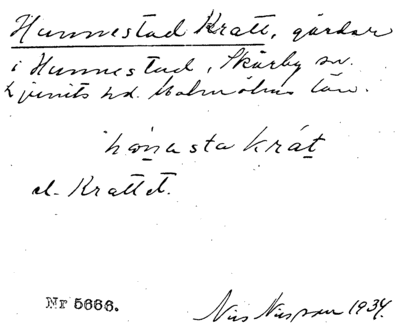 Hunnestad Kratt, gårdar
i Hunnestad, Skårby sn.
Ljunits hd. Malmöhus län.
krát
el. Krattet.
Nr 5666.
Nils Nilsson 1934.